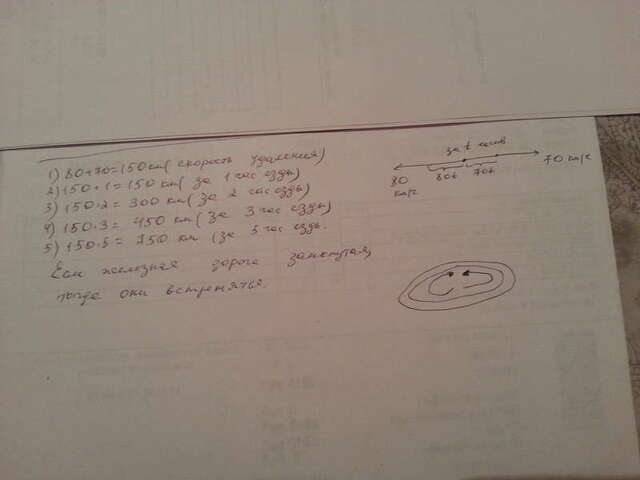 1) 80+70=150 км( скорость удаления)
2) 150·1=150 км( за 1 час езды)
3) 150·2= 300 км( за 2 час езды)
4) 150·3= 450 км( за 3 час езды)
5) 150·5= 750 км (за 5 час езды.
Если железная дорога замкнутая,
тогда они встретятся.
за t
80t 70t
70 км/с
80
км/с